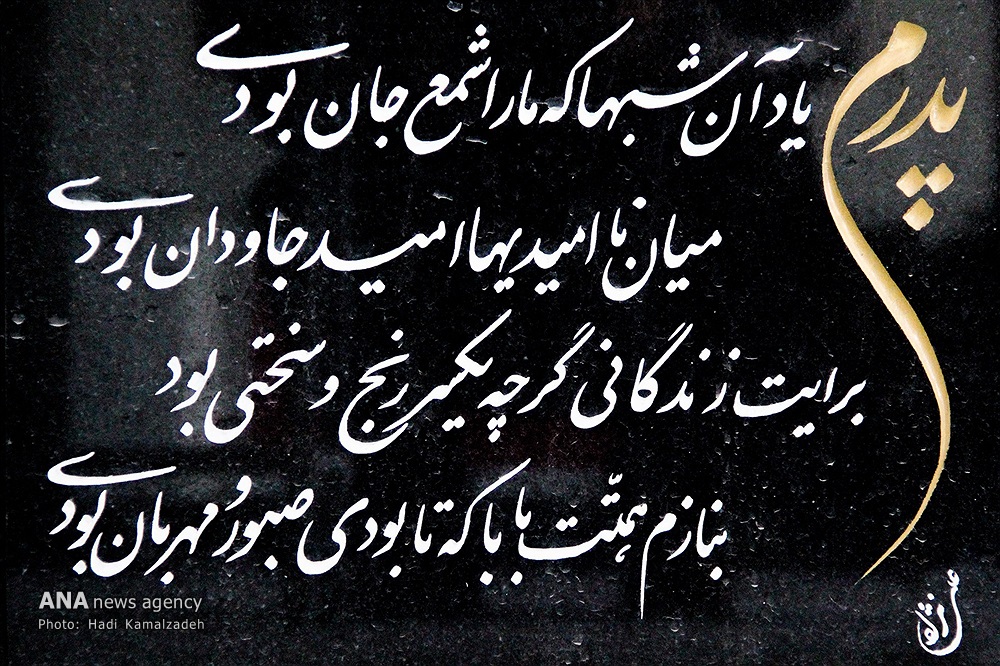 پدرم
یاد آن شبها که ما را شمع جان بودی
میان نا امیدیها امید جاودان بودی
برایت زندگانی گرچه یکسر رنج و سختی بود
بنازم همّتت بابا که تا بودی صبور و مهربان بودی
ANA news agency
Photo: Hadi Kamalzadeh